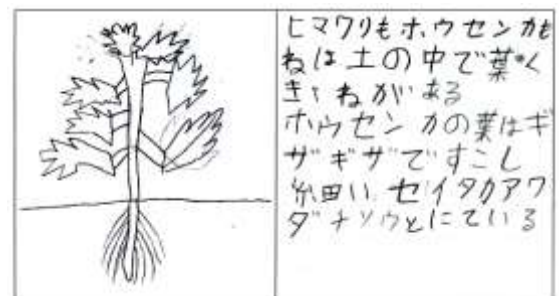 ヒマワリもホウセンカも
ねは土の中で葉・く
き・ねがある
ホウセンカの葉はギ
ザギザですこし
細い。セイタカアワ
ダチソウとにている